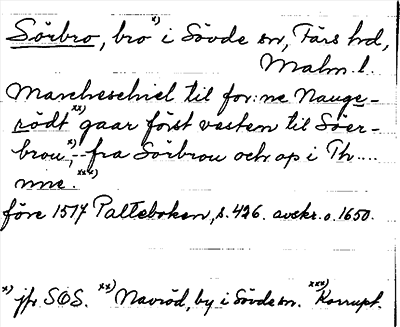 Sörbro, bro x) i Sövde sn, Färs hd,
Malm. l.
Marcheschiel til for:ne Nauge-
rödt xx) gaar först vesten til Söer-
brou, x) -- fra Sörbrou och op i Th....
nne. xxx)
före 1517 Palteboken, s. 426. avskr. o. 1650.
x) jfr SOS. xx) Navröd, by i Sövde sn. xxx) Korrupt.